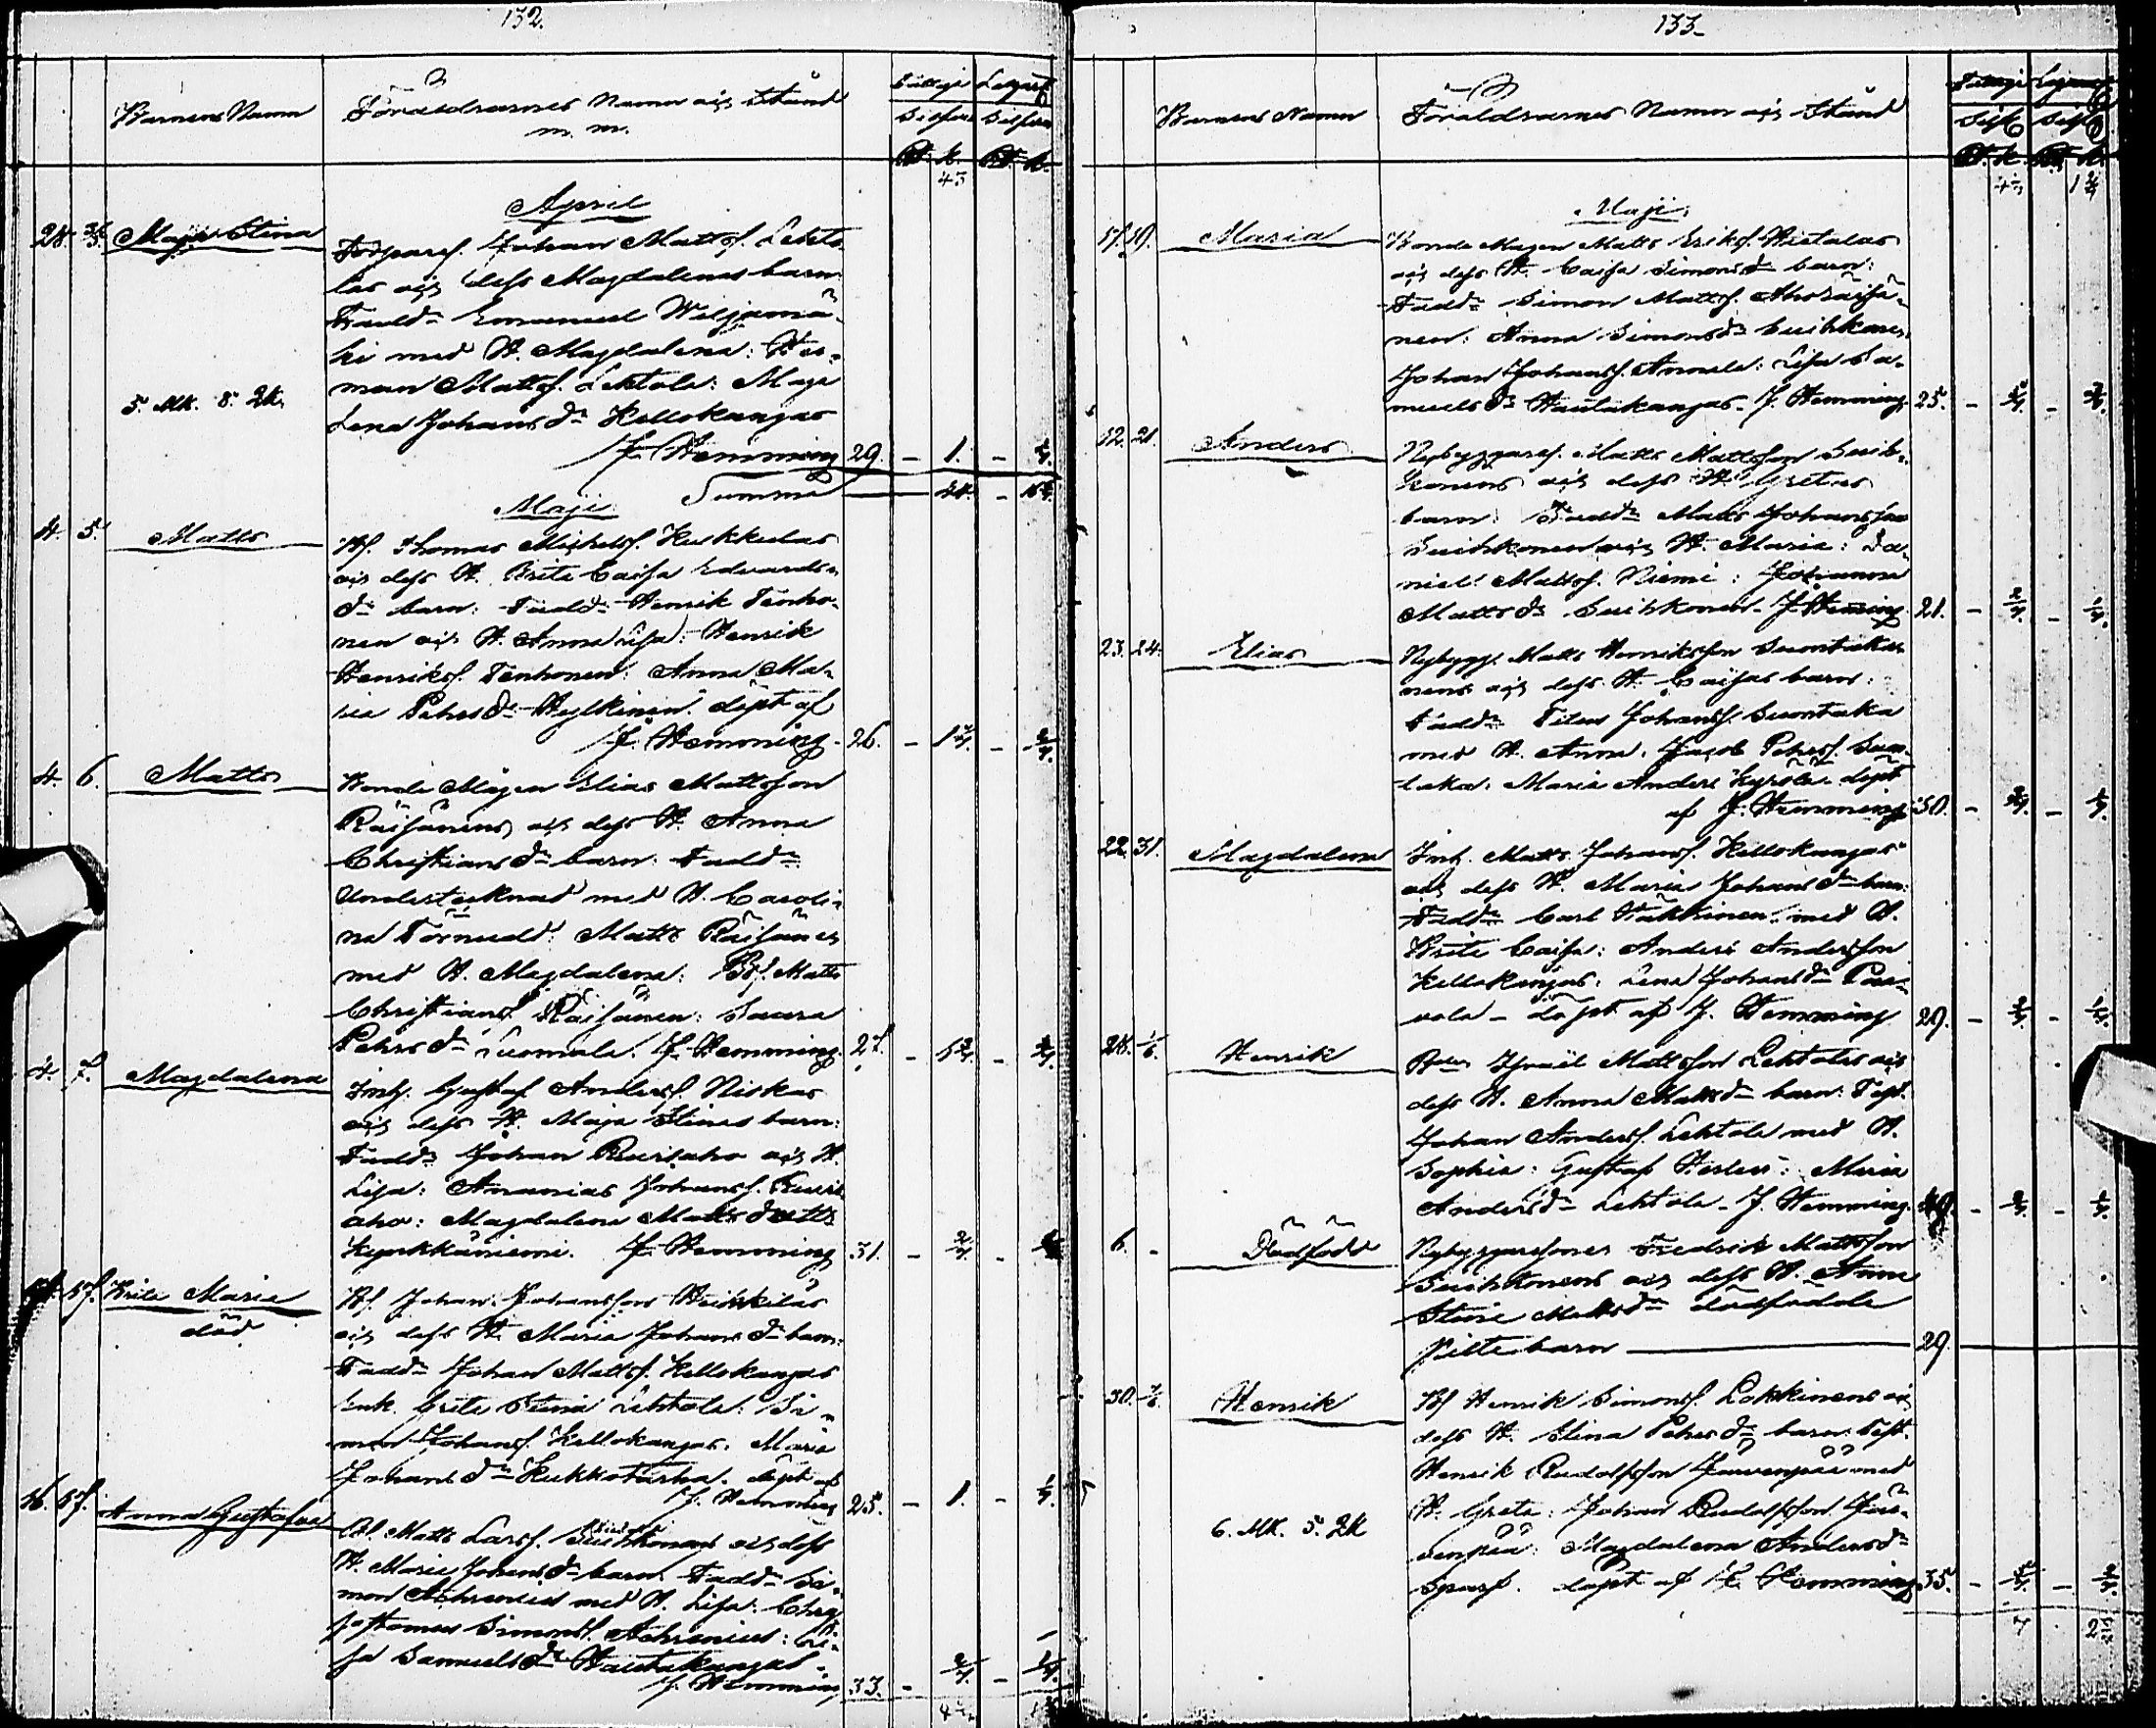 132.
Barnens Namn
Föräldrarnes Namn och Stånd
m. m.
Fattige Legart
Silfver Silfver
R. k. R. k.
April
28. Maja Stina
Torparef. Johan Mattsf. Lehto-
las och dess Magdalenas barn:
Fadd. Emanuel Wiljamä-
ki med H. Magdalena: Her-
man Mattsf. Lehtola: Maja
5. MK. 8. 2K.
Lena Johansdr Kellokangas
J. Hemming 29. - 1. -
Summa
Maji
4. 5. Matts
Bf. Thomas Michelsf. Kukkulas
och dess H. Brita Caisa Edvards-
dr barn: Fadd. Henrik Tenho-
nen och H. Anna Lisa: Henrik
Henriksf. Tenhonen: Anna Ma-
ria Pehrsdr Hylkinen. döpt af
J. Hemming. 26.
4. 6. Matts
Bonde Mågen Elias Mattsson
Räisänens och dess H. Anna
Christiansdr barn: Fadd.
Undertecknad med H. Caroli-
na Törnudd: Matts Räisänen
med H. Magdalena: Bf. Matts
Christiansf. Räisänen: Saara
Pehrsdr Luomala. J. Hemming. 27.
4. 7. Magdalena
Inh. Gustaf Andersf. Niskas
och dess H. Maja Stinas barn:
Fadd. Johan Ruisaho och H.
Lisa: Ananias Johansf. Ruis-
aho: Magdalena Matts dotter
Kyrkkäniemi. J. Hemming 31.
17. Brita Maria
död
Bf. Johan Johansson Heikkiläs
och dess H. Maria Johansdr barn:
Fadd. Johan Mattsf. Kellokangas
Enk. Greta Stina Lehtola: Si-
mon Johansf. Kellokangas. Maria
Johansdr Kukkotarha. döpt af
J. Hemming 25. - 1. -
16. 17. Anna Gustafva
Bf. Matts Larsf. Suihkonens och dess
H. Maria Johansdr barn Fadd. Si-
mon Achrenius med H. Lisa: Chry-
sostomus Simonsf. Achrenius: Li-
sa Samuelsdr Hautakangas.
J. Hemming 33.
133.
Barnens Namn
Föräldrarnes Namn och Stånd
Fattige Legart
Silfv. Silfv.
R. k. R. k.
Maji
17. 19. Maria
Bonde Magen Matts Eriksf. Hietalas
och dess H. Caisa Simonsdr barn:
Fadd. Simon Mattsf. Ahoräisä-
nen: Anna Simonsdr Suihkonen
Johan Johansf. Annala: Lisa Sa-
muelsdr Hautakangas. J. Hemming 25.
12. 21. Anders
Nybyggaref. Matts Mattsson Suih-
konens och dess H. Gretas
barn: Fadd. Matts Johansson
Suihkonen och H. Maria: Da-
niel Mattsf. Niemi: Johanna
Mattsdr Suihkonen. J. Hemming 21.
23. 24. Elias
Nybygg. Matts Henriksson Suontaka-
nens och dess H. Caisas barn:
Fadd. Titus Johansf. Suontaka
med H. Anna. Jacob Pehrsf. Suon-
taka: Maria Anders Kyrölä. döpt
af J. Hemming 30.
22. 31. Magdalena
Inh. Matts Johansf. Kellokangas
och dess H. Maria Johansdr barn:
Fadd. Carl Häkkinen med H.
Brita Caisa: Anders Andersson
Kellokangas: Lena Johansdr Paa-
vola - döpt af J. Hemming 29.
28. Henrik
Israël Mattsson Lehtolas och
dess H. Anna Mattsdr barn: Test.
Johan Andersf. Lehtola med H.
Sophia: Gustaf Herlevi: Maria
Andersdr Lehtola. J. Hemming.
6. - Dödfödt
Nybyggaresonen Fredrik Mattsson
Suihkonens och dess H. Anna
Stina Mattsdr dödfödda
Pilte barn 29.
30. Henrik
Bf Henrik Simonsf. Lokkinens och
dess H. Elina Pehrsdr barn: Test.
Henrik Rudolfsson Järvenpää med
H. Greta: Johan Rudolfsson Jär-
6. MK. 5. 2K
venpää: Magdalena Andersdr
Sparf. döpt af J. Hemming. 35.